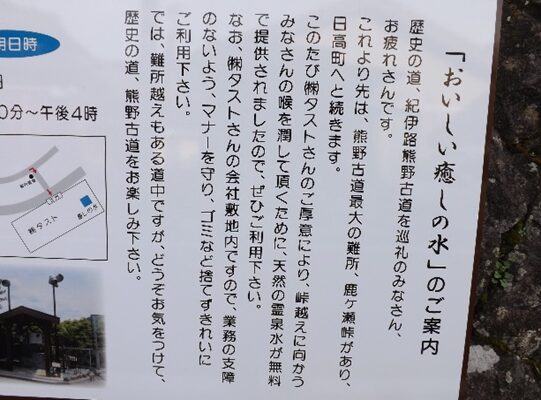 「おいしい癒しの水」のご案内
歴史の道、紀伊路熊野古道を巡礼のみなさん、
お疲れさんです。
これより先は、熊野古道最大の難所、鹿ヶ瀬峠があり、
日高町へと続きます。
このたび㈱タストさんのご厚意により、峠越えに向かう
みなさんの喉を潤して頂くために、天然の霊泉水が無料
で提供されましたので、ぜひご利用下さい。
なお、㈱タストさんの会社敷地内ですので、業務の支障
のないよう、マナーを守り、ゴミなど捨てずきれいに
ご利用下さい。
では、難所越えもある道中ですが、どうぞお気をつけて、
歴史の道、熊野古道をお楽しみ下さい。
用日時
0分～午後4時
㈱タスト